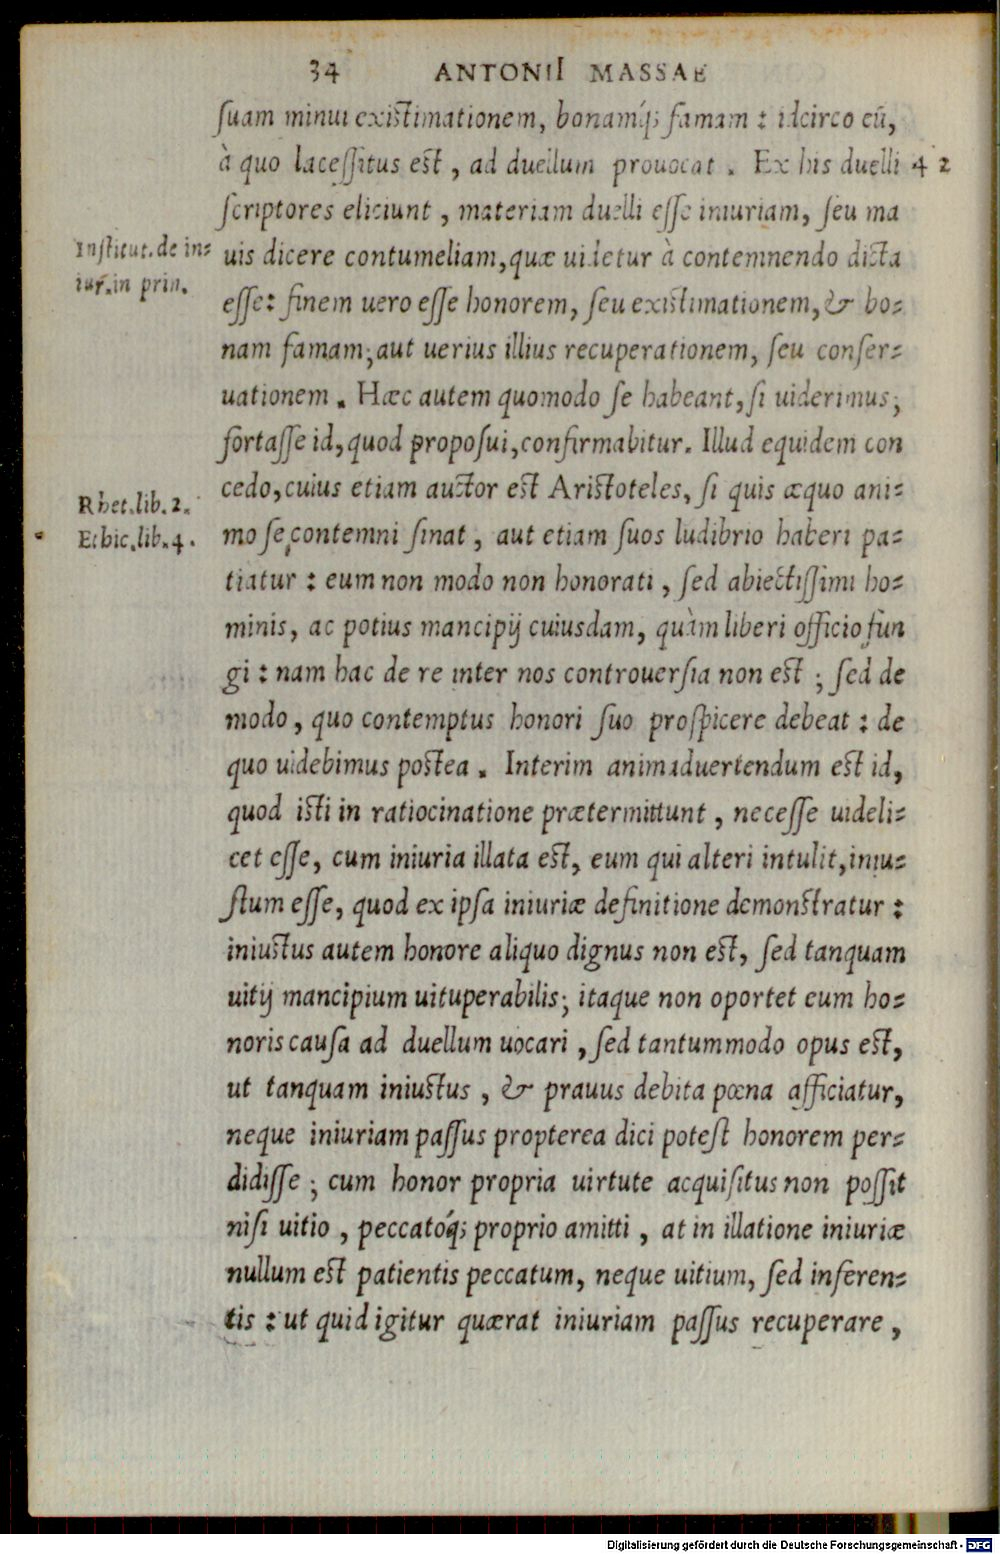 34 ANTONII MASSAE
suam minui existimationem, bonamq́; famam : idcirco eũ,
à quo lacessitus est, ad duellum prouocat. Ex his duelli 42
scriptores eliciunt, materiam duelli esse iniuriam, seu ma
Institut. de in=
iur. in prin.
uis dicere contumeliam, quæ uidetur à contemnendo dicta
esse: finem uero esse honorem, seu existimationem, & bo=
nam famam; aut uerius illius recuperationem, seu conser=
uationem. Hæc autem quomodo se habeant, si uiderimus;
fortasse id, quod proposui, confirmabitur. Illud equidem con
cedo, cuius etiam auctor est Aristoteles, si quis æquo ani=
Rhet. lib. 2.
Ethic. lib. 4.
mo se contemni sinat, aut etiam suos ludibrio haberi pa=
tiatur : eum non modo non honorati, sed abiectissimi ho=
minis, ac potius mancipij cuiusdam, quàm liberi officio fun
gi : nam hac de re inter nos controuersia non est ; sed de
modo, quo contemptus honori suo prospicere debeat : de
quo uidebimus postea. Interim animaduertendum est id,
quod isti in ratiocinatione prætermittunt, necesse uideli=
cet esse, cum iniuria illata est, eum qui alteri intulit, iniu=
stum esse, quod ex ipsa iniuriæ definitione demonstratur :
iniustus autem honore aliquo dignus non est, sed tanquam
uitij mancipium uituperabilis; itaque non oportet eum ho=
noris causa ad duellum uocari, sed tantummodo opus est,
ut tanquam iniustus, & prauus debita pœna afficiatur,
neque iniuriam passus propterea dici potest honorem per=
didisse ; cum honor propria uirtute acquisitus non possit
nisi uitio, peccatoq́; proprio amitti, at in illatione iniuriæ
nullum est patientis peccatum, neque uitium, sed inferen=
tis : ut quid igitur quærat iniuriam passus recuperare,
Digitalisierung gefördert durch die Deutsche Forschungsgemeinschaft - DFG